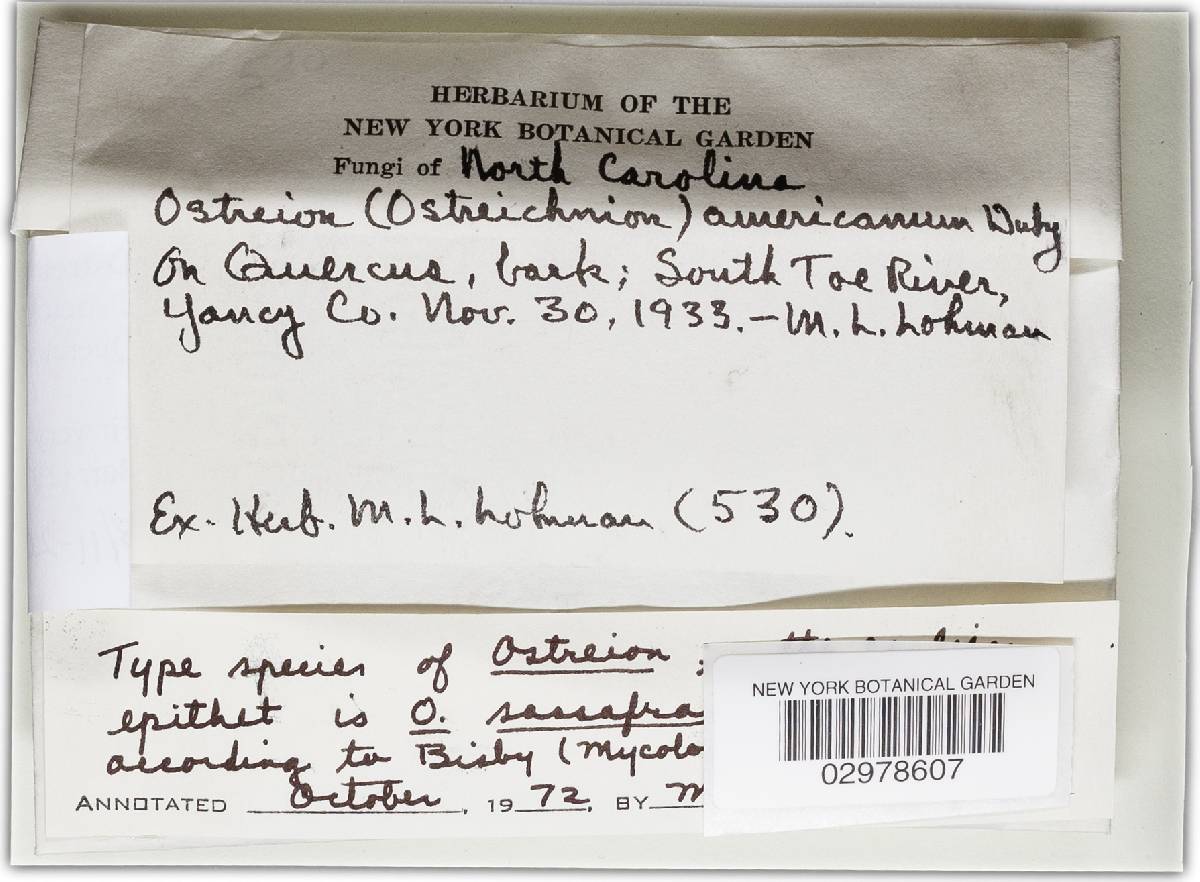 HERBARIUM OF THE
NEW YORK BOTANICAL GARDEN
Fungi of North Carolina
Ostreion (Ostreichnion) americanum Duby
On Quercus, bark; South Toe River,
Yancy Co. Nov. 30, 1933.-M. L. Lohman
Ex. Herb. M. L. Lohman (530).
Type species of Ostreion ;
epithet is O. sassafra
according to Bisby (Mycolo
ANNOTATED October, 1972, BY M
NEW YORK BOTANICAL GARDEN
02978607